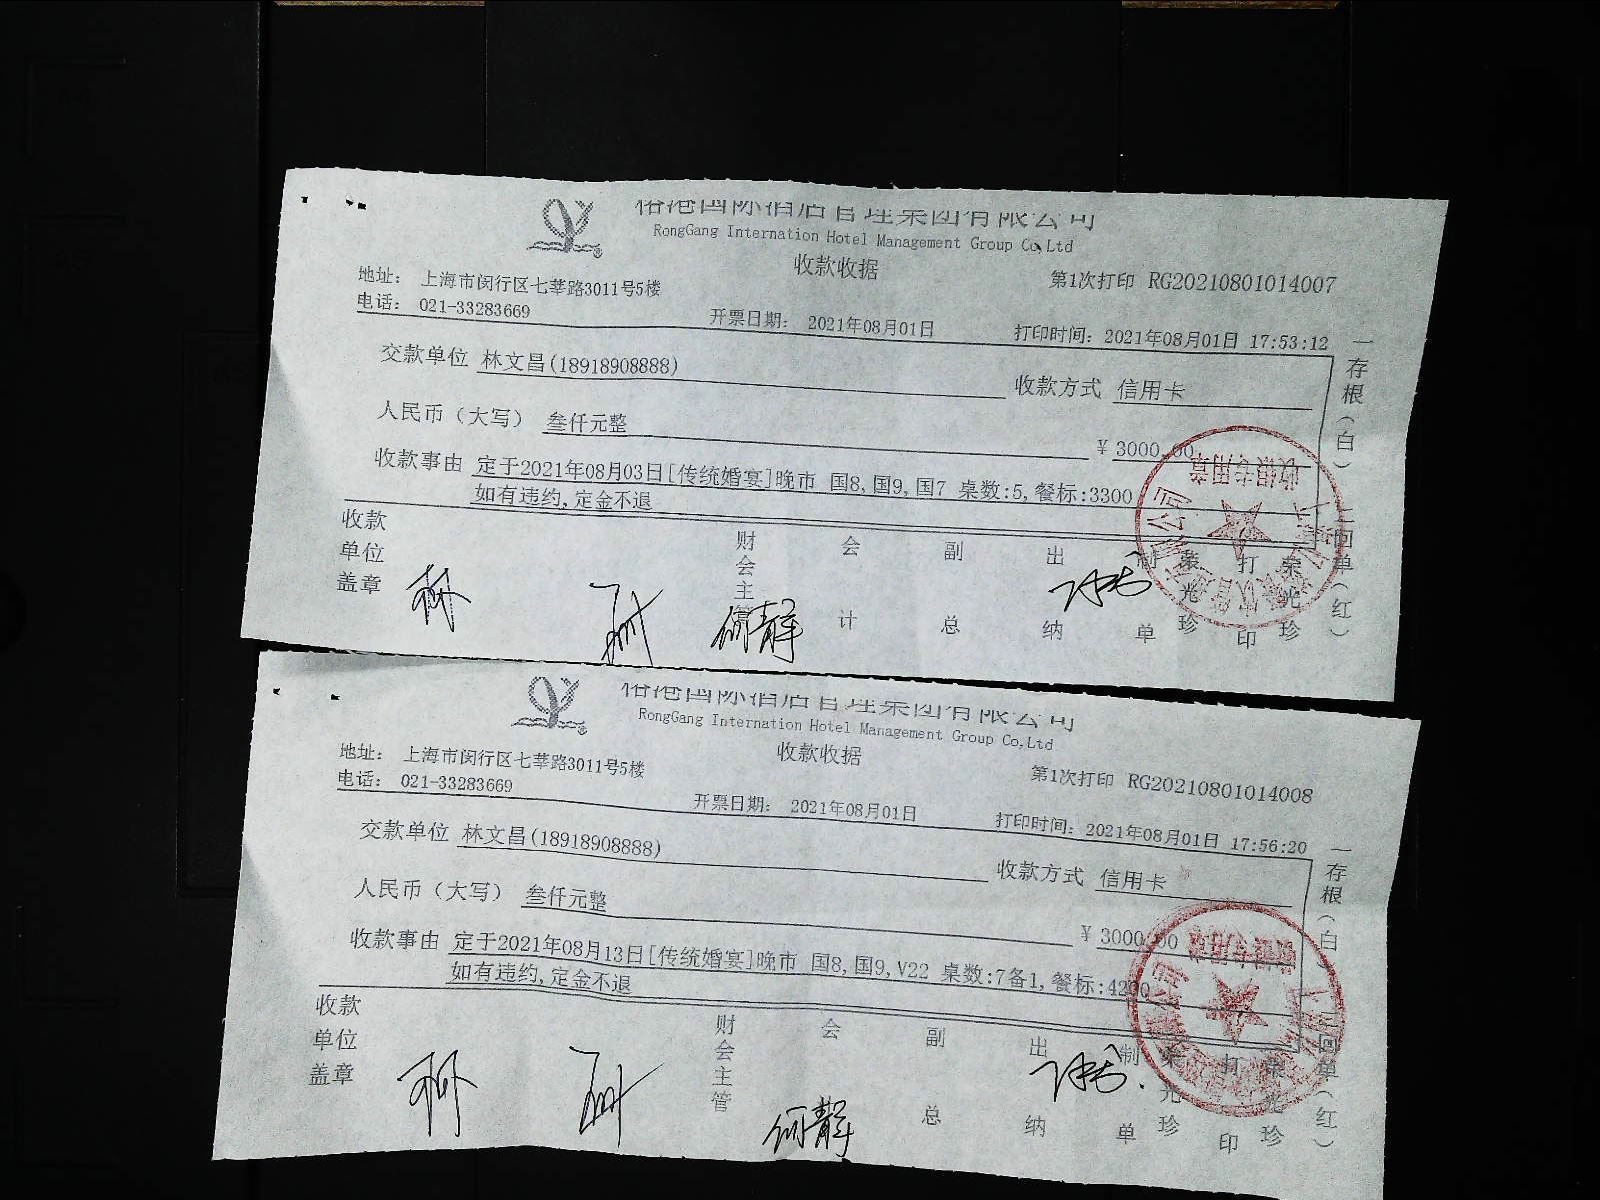 裕港国际酒店管理集团有限公司
RongGang Internation Hotel Management Group Co,Ltd
收款收据
地址: 上海市闵行区七莘路3011号5楼
第1次打印 RG20210801014007
电话: 021-33283669
开票日期: 2021年08月01日
打印时间: 2021年08月01日 17:53:12
交款单位 林文昌(18918908888)
收款方式 信用卡
人民币（大写） 叁仟元整
¥ 3000.00
收款事由 定于2021年08月03日[传统婚宴]晚市 国8,国9,国7 桌数:5,餐标:3300
如有违约,定金不退
收款单位盖章
财会主管 何静
会计
副总
出纳
制单 荣光珍
打印 荣光珍
一存根（白）
二回单（红）
收银专用章
裕港国际酒店管理集团有限公司
RongGang Internation Hotel Management Group Co,Ltd
收款收据
地址: 上海市闵行区七莘路3011号5楼
第1次打印 RG20210801014008
电话: 021-33283669
开票日期: 2021年08月01日
打印时间: 2021年08月01日 17:56:20
交款单位 林文昌(18918908888)
收款方式 信用卡
人民币（大写） 叁仟元整
¥ 3000.00
收款事由 定于2021年08月13日[传统婚宴]晚市 国8,国9,V22 桌数:7备1,餐标:4200
如有违约,定金不退
收款单位盖章
财会主管 何静
会
副总
出纳
制单 荣光珍
打印 荣光珍
一存根（白）
二回单（红）